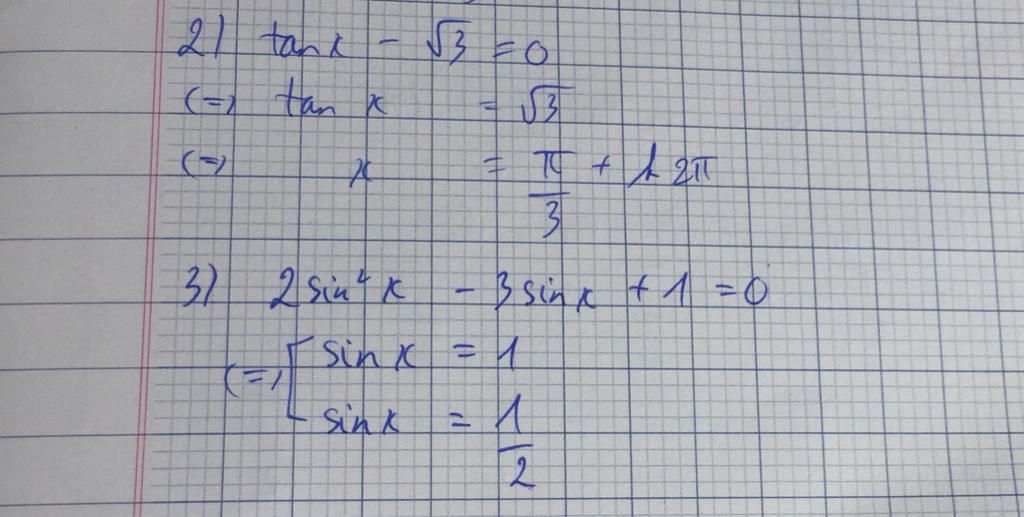 2) tan x - √3 = 0
(=) tan x = √3
(=) x = π/3 + k2π
3) 2 sin² x - 3 sin x + 1 = 0
(=) [ sin x = 1
sin x = 1/2